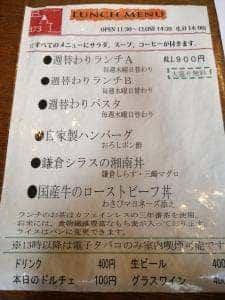 LUNCH MENU
OPEN 11:30～CLOSE 14:30 (L.O 14:00)
☆すべてのメニューにサラダ、スープ、コーヒーが付きます。
●週替わりランチA ALL900円
毎週木曜日替わり 大盛り無料
●週替わりランチB
毎週木曜日替わり
●週替わりパスタ
毎週木曜日替わり
●自家製ハンバーグ
おろしポン酢
●鎌倉シラスの湘南丼
鎌倉しらす・三崎マグロ
●国産牛のローストビーフ丼
わさびマヨネーズ添え
ランチのお茶はカフェインレスの三年番茶を使用。
お米には、食物繊維豊富なもち麦が入っております。
ライスはパンに変更できます。
※13時以降は電子タバコのみ室内喫煙可能です
ドリンク 400円 生ビール 400円
本日のドルチェ 100円 グラスワイン